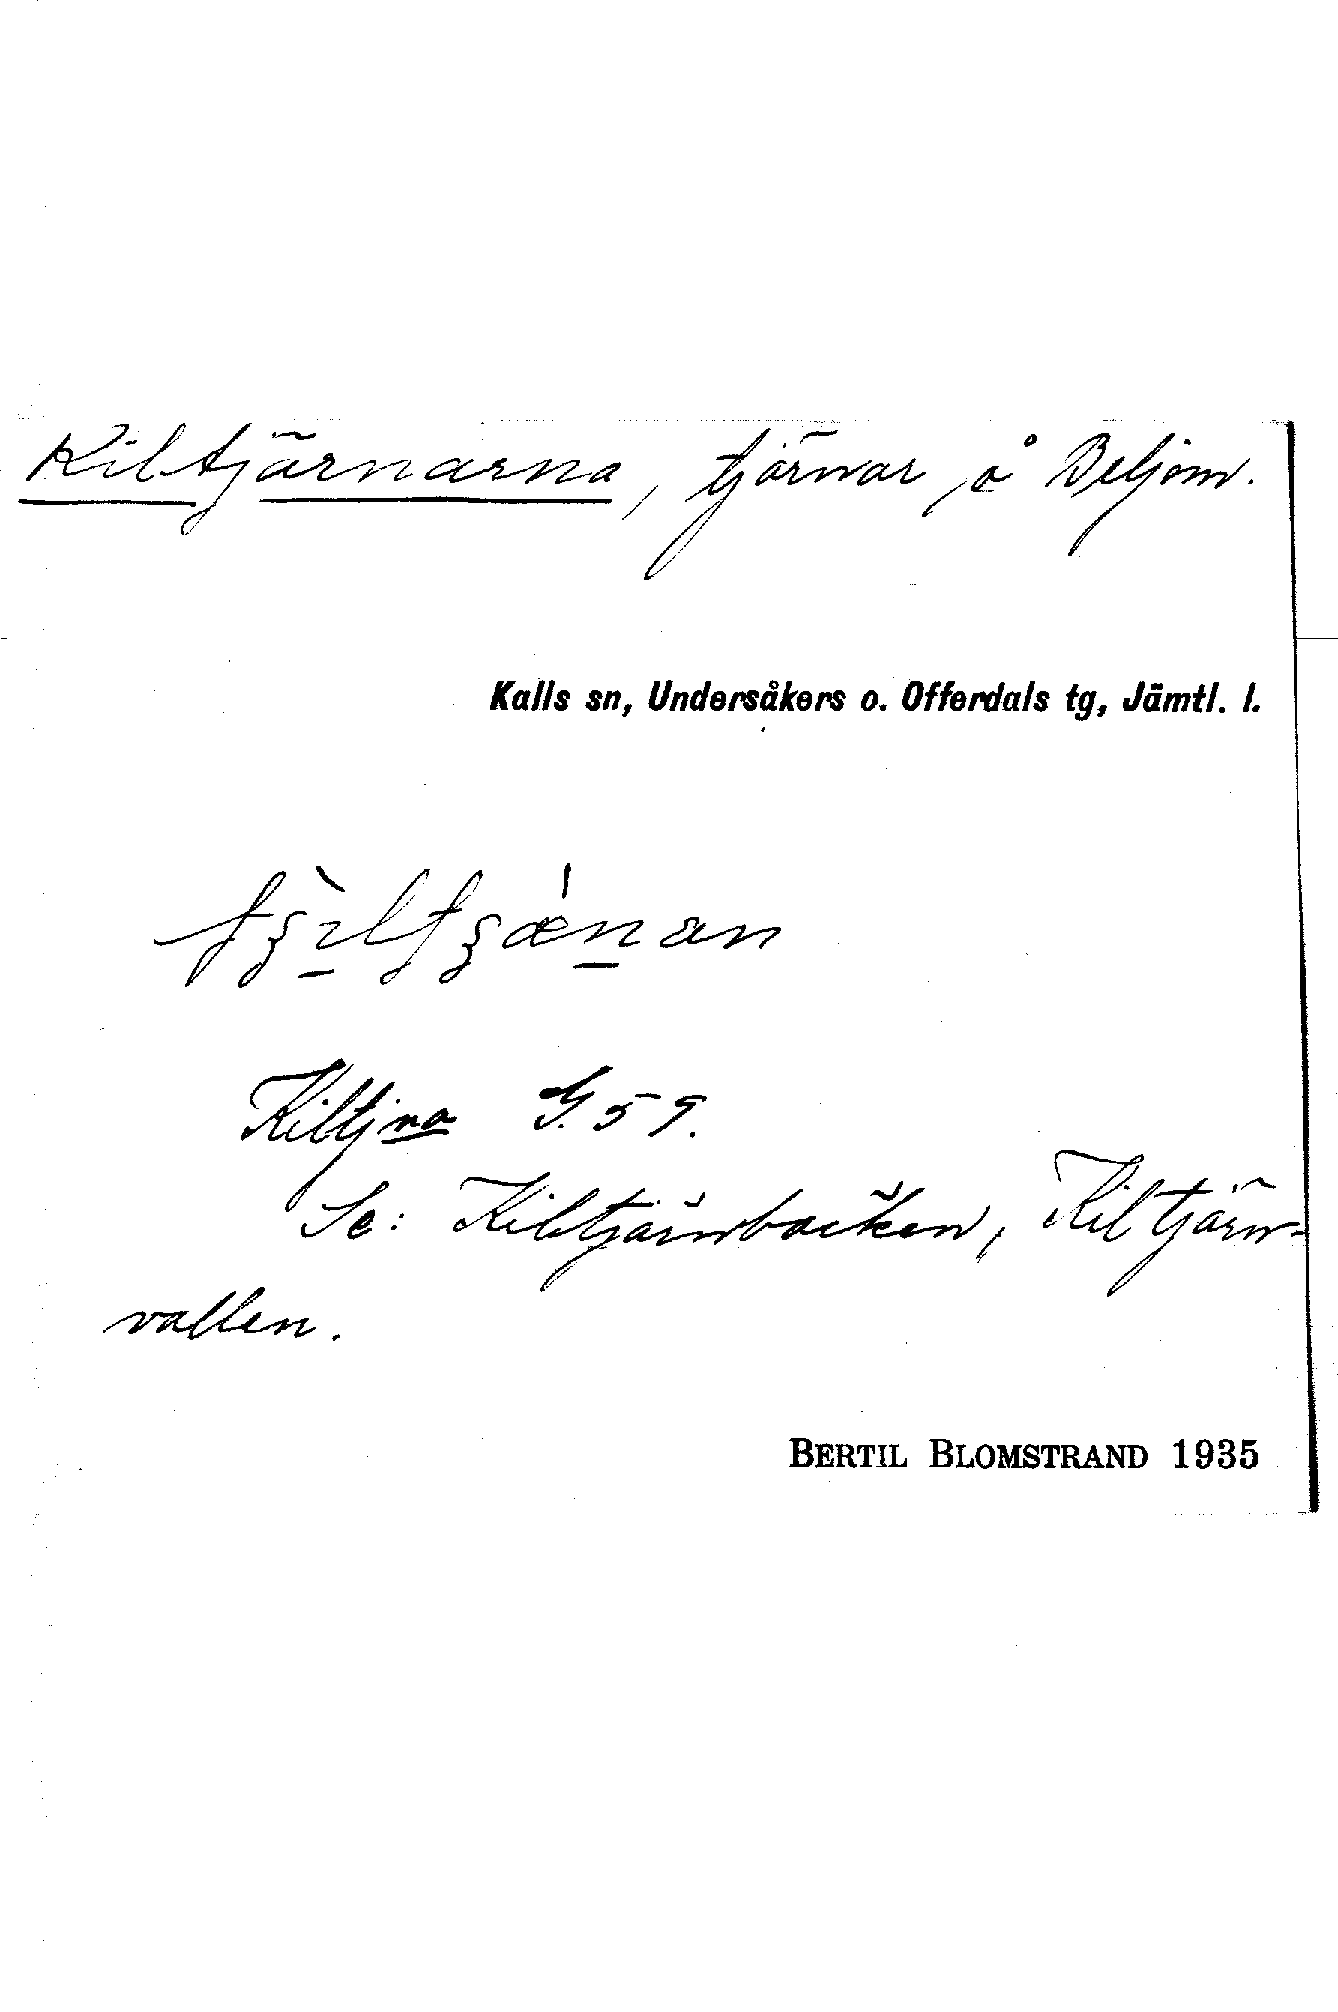 Kiltjärnarna, tjärnar å Beljom.
Kalls sn, Undersåkers o. Offerdals tg, Jämtl. l.
Kiltjna G. 59.
Se: Kiltjärnbacken, Kiltjärn-
vallen.
BERTIL BLOMSTRAND 1935